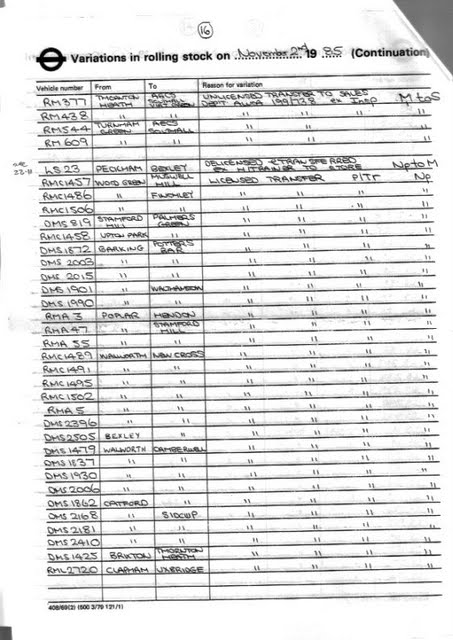 16
Variations in rolling stock on November 2nd 1985 (Continuation)
Vehicle number From To Reason for variation
RM377 THORNTON HEATH AECS SOUTHALL UNLICENSED TRANSFER TO SALES DEPT ex Insp M to S
RM438 " " " " " "
RM544 TURNHAM GREEN AECS SOUTHALL " " " "
RM609 " " " " " "
LS23 PECKHAM BEXLEY DELICENSED & TRANSFERRED ex M/TRAINER TO STORE Np to M
RMC1457 WOOD GREEN MUSWELL HILL LICENSED TRANSFER P/Tr Np
RMC1486 " FINCHLEY " " " "
RMC1506 " " " " " "
DMS819 STAMFORD HILL PALMERS GREEN " " " "
RMC1458 UPTON PARK " " " " "
DMS1872 BARKING POTTERS BAR " " " "
DMS2003 " " " " " "
DMS2015 " " " " " "
DMS1901 " WALTHAMSTOW " " " "
DMS1990 " " " " " "
RMA3 POPLAR HENDON " " " "
RMA47 " STAMFORD HILL " " " "
RMA55 " " " " " "
RMC1489 WALWORTH NEW CROSS " " " "
RMC1491 " " " " " "
RMC1495 " " " " " "
RMC1502 " " " " " "
RMA5 " " " " " "
DMS2396 " " " " " "
DMS2505 BEXLEY " " " " "
DMS1479 WALWORTH CAMBERWELL " " " "
DMS1837 " " " " " "
DMS1930 " " " " " "
DMS2006 " " " " " "
DMS1862 CATFORD " " " " "
DMS2168 " SIDCUP " " " "
DMS2181 " " " " " "
DMS2410 " " " " " "
DMS1425 BRIXTON THORNTON HEATH " " " "
RML2720 CLAPHAM UXBRIDGE " " " "
408/69(2) (500 3/79 121/1)